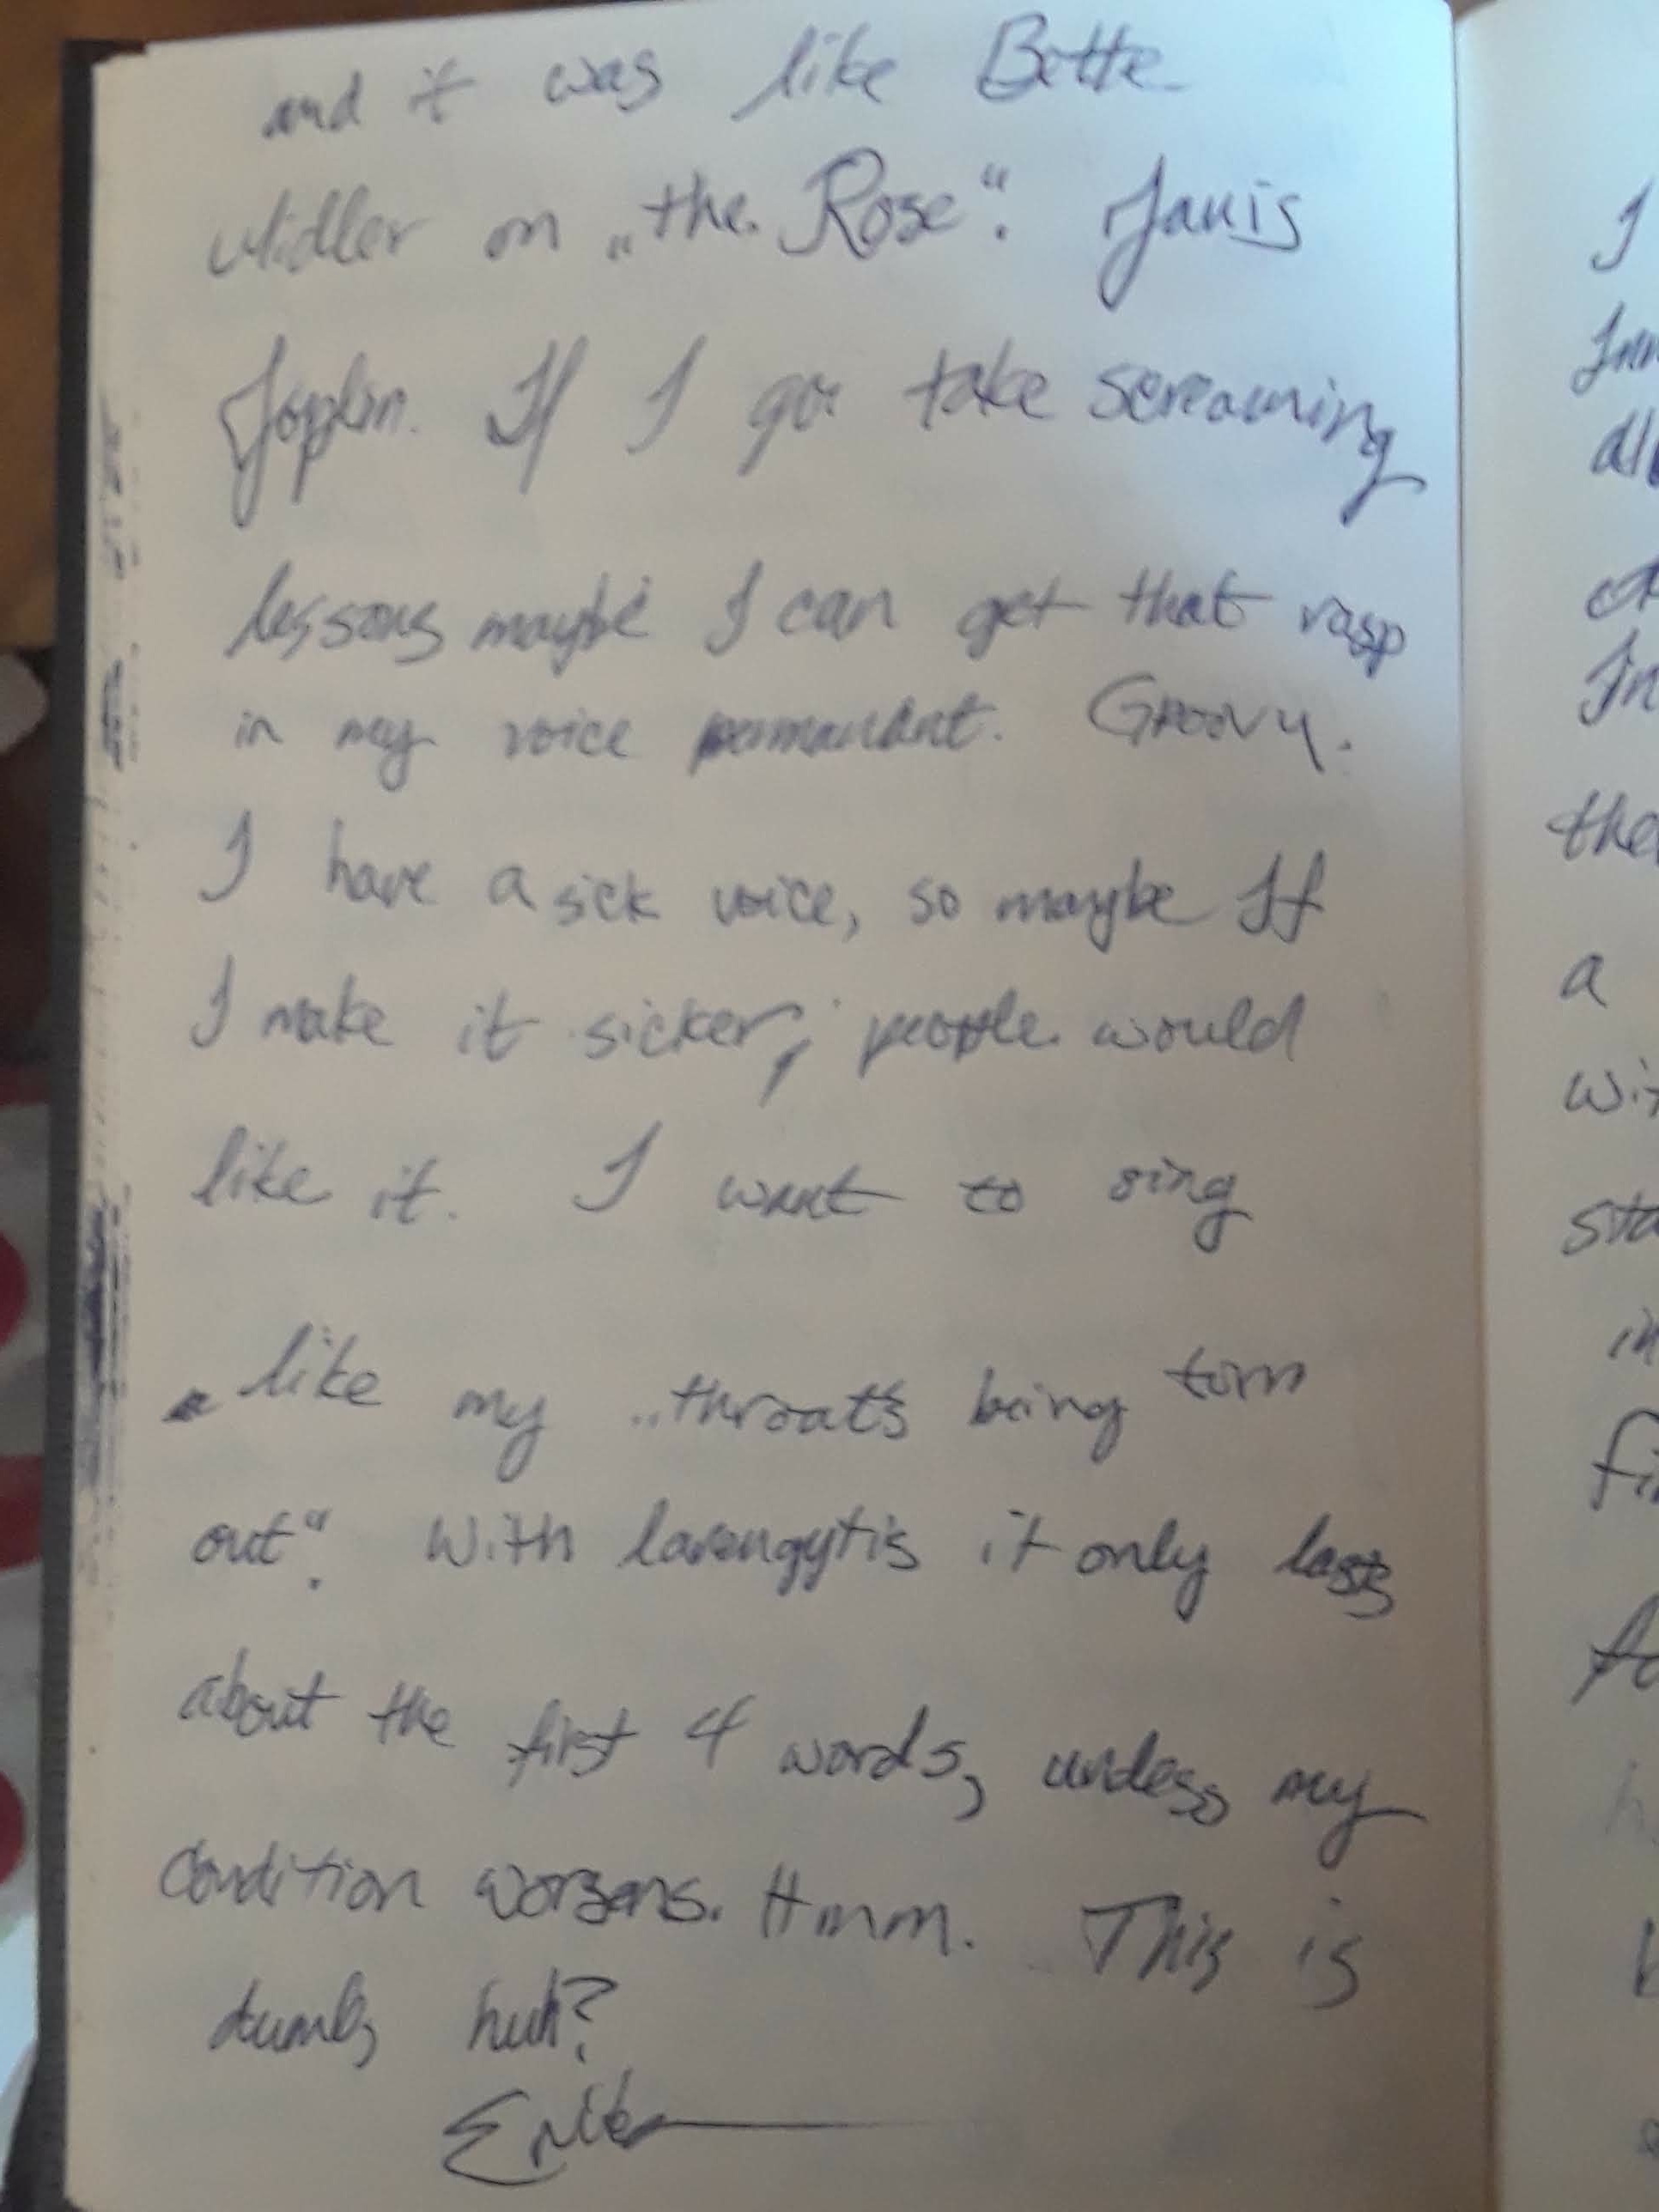 and it was like Bette
Midler on „the Rose“. Janis
Joplin. If I go take screaming
lessons maybe I can get that rasp
in my voice permanant. GROOVY.
I have a sick voice, so maybe If
I make it sicker, people would
like it. I want to sing
like my „throat's being torn
out“. With larengytis it only lasts
about the first 4 words, unless my
condition worsens. Hmm. This is
dumb, huh?
I
all
the
a
in